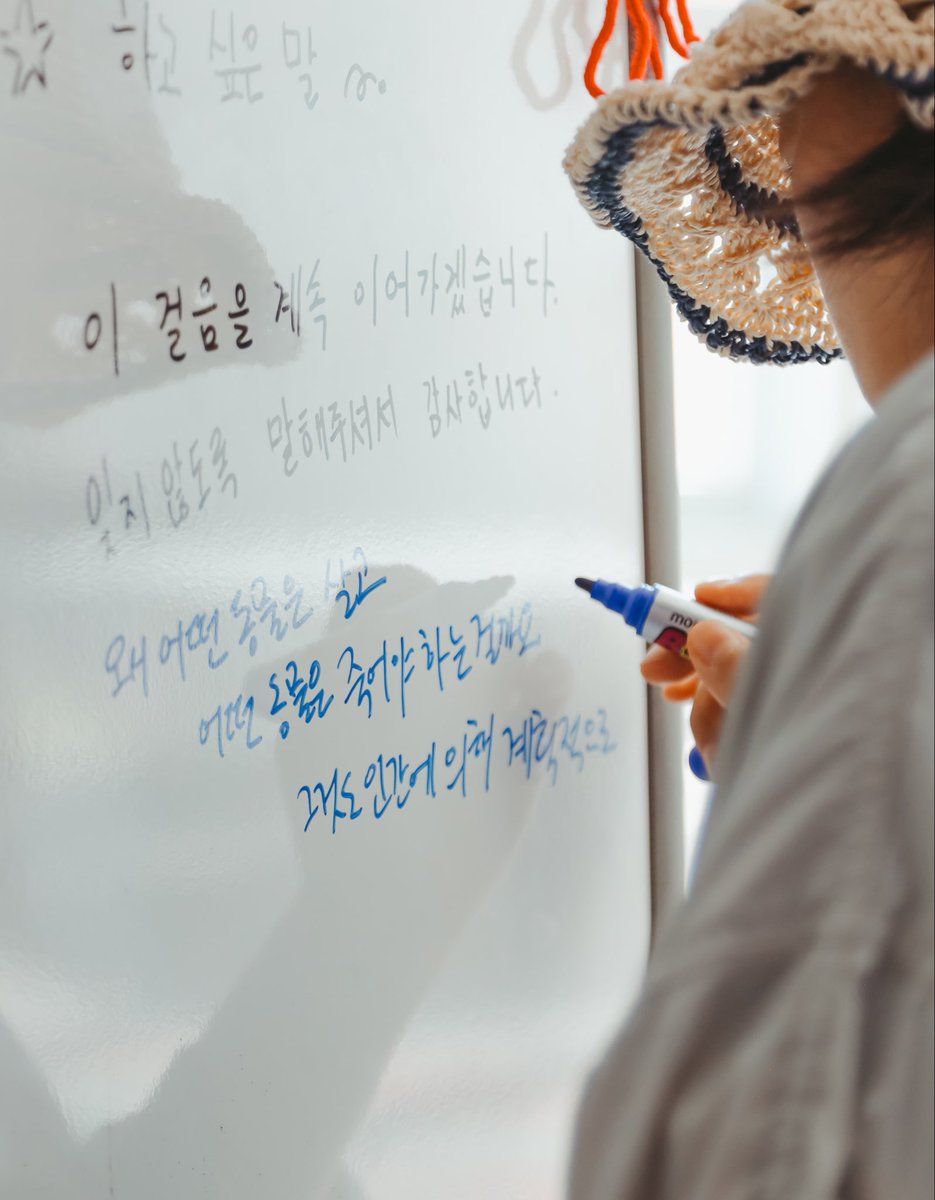 ☆ 하고 싶은 말 ~。
이 걸음을 계속 이어가겠습니다.
잊지 않도록 말해주셔서 감사합니다.
왜 어떤 동물은 살고
어떤 동물은 죽어야 하는걸까요
그것도 인간에 의해 계획적으로
mon